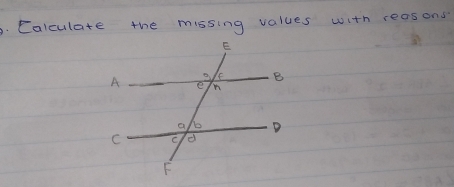 Calculate the missing values with reasons
E
A B
e h
a b
C D
c d
F